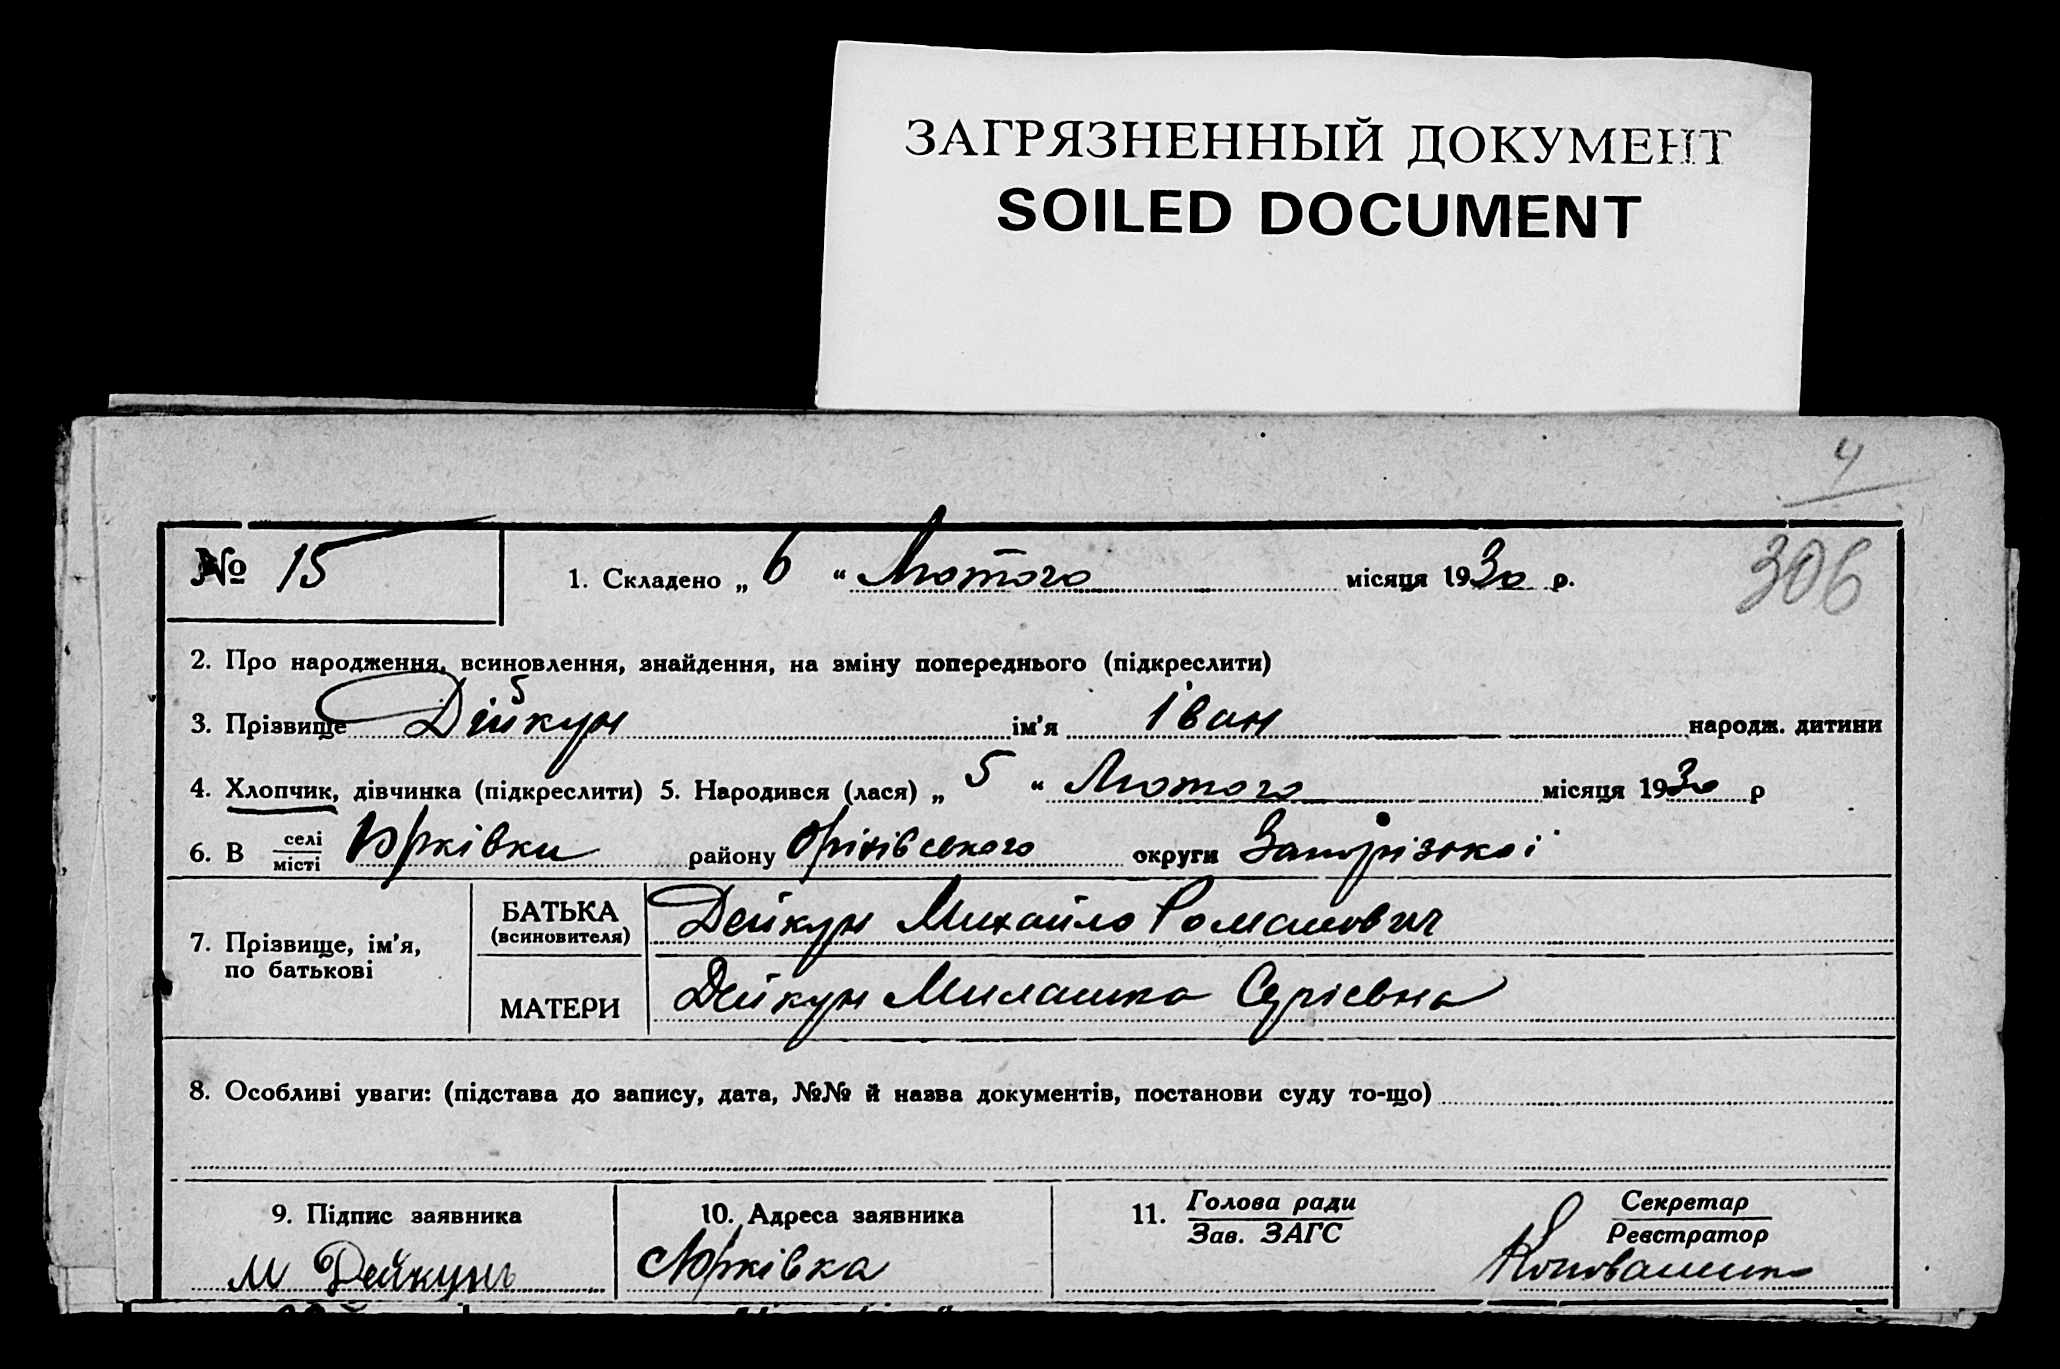 ЗАГРЯЗНЕННЫЙ ДОКУМЕНТ
SOILED DOCUMENT
4
№ 15
1. Складено „ 6 “ Лютого місяця 1930 р.
306
2. Про народження, всиновлення, знайдення, на зміну попереднього (підкреслити)
3. Прізвище Дійкун ім’я Іван народж. дитини
4. Хлопчик, дівчинка (підкреслити) 5. Народився (лася) „ 5 “ Лютого місяця 1930 р
6. В селі місті Юрківки району Оріхівського округи Запорізької
7. Прізвище, ім’я, по батькові
БАТЬКА (всиновителя) Дейкун Михайло Романович
МАТЕРИ Дейкун Милашка
8. Особливі уваги: (підстава до запису, дата, №№ й назва документів, постанови суду то-що)
9. Підпис заявника
10. Адреса заявника
11. Голова ради Зав. ЗАГС
Секретар Реєстратор
М Дейкунъ
Юрківка